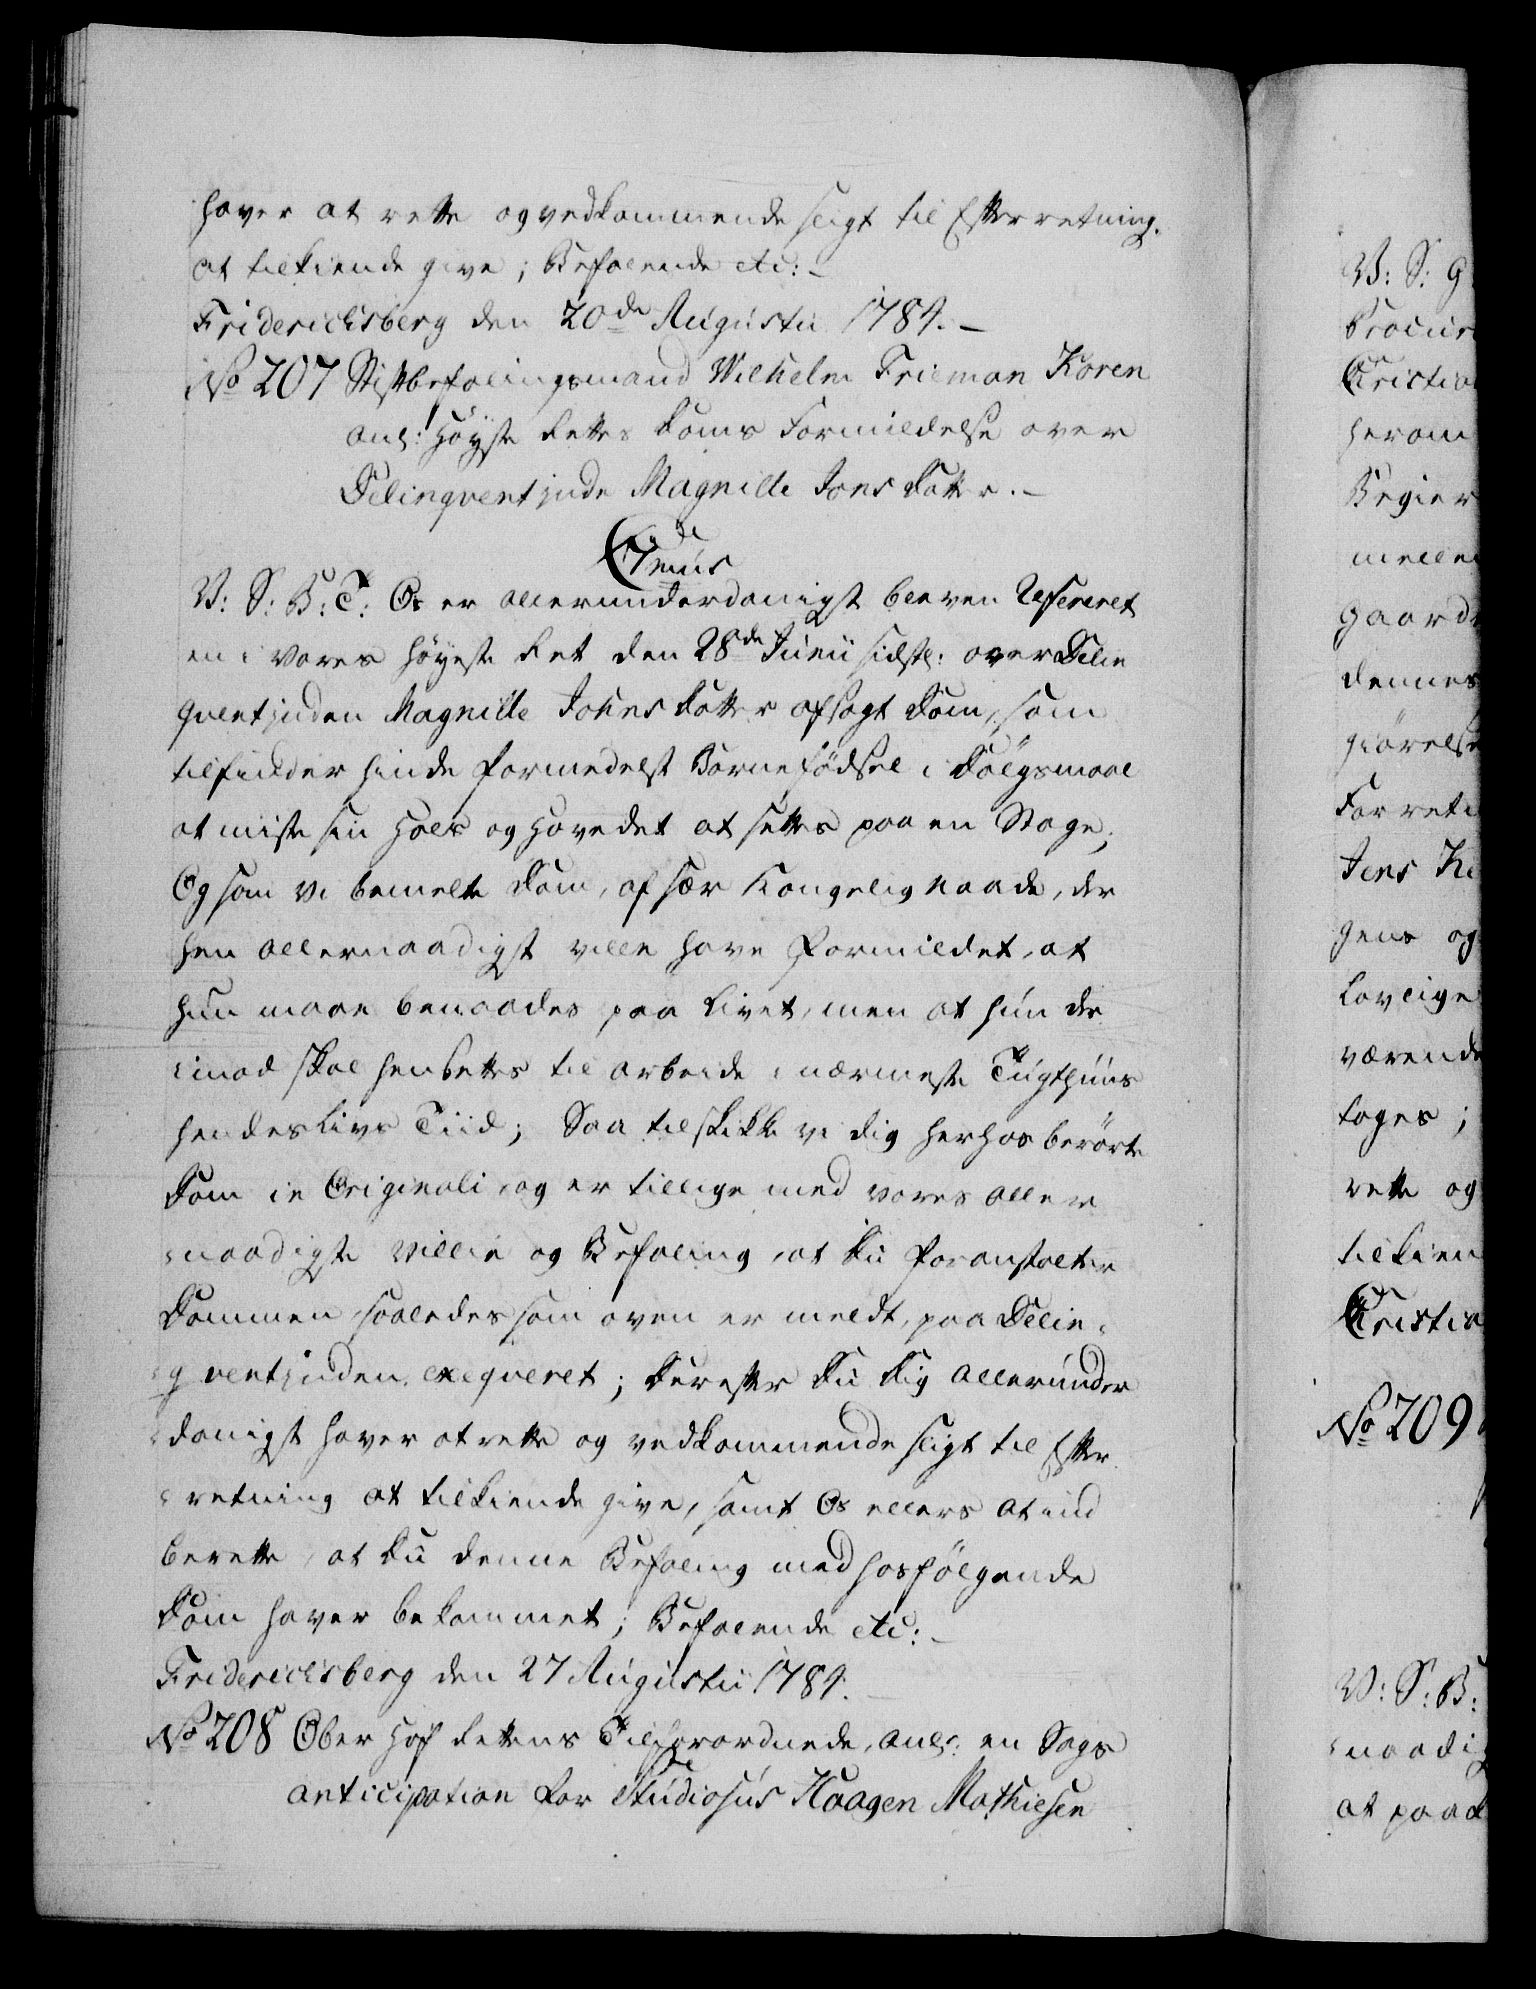 haver at rette og vedkommende sligt til Efterretning.
at tilkiende give; Befalende etc: –
Friderichsberg den 20de Augusti 1784. –
No 207 Stiftbefalingsmand Wilhelm Frieman Koren
anl: Høyste Rettes Doms Formildelse over
Delinqventinde Magnille Jons Datter. –
C 7mus
V: S: G: T: Os er allerunderdanigst bleven Refereret
en i Vores Høyeste Ret den 28de Junii sidstl: over Delin
qventinden Magnille Johns Datter afsagt Dom, som
tilfinder hende formedelst Barnefødsel i Dølgsmaal
at miste sin Hals og Hovedet at settes paa en Stage;
Og som Vi bemelte Dom, af sær Kongelig Naade, der
hen allernaadigst ville have formildet, at
hun maae benaades paa Livet, men at hun der
imod skal hensettes til Arbeide i nærmeste Tugthuus
hendes Livs Tiid; Saa tilskikke vi dig herhos berørte
Dom in Originali, og er tillige med vores aller
naadigste Villie og Befaling, at Du foranstalter
Dommen saaledes som oven er meldt, paa Delin-
qventinden, exeqveret; Derefter Du Dig allerunder
danigst haver at rette og vedkommende sligt til Efter
retning at tilkiende give, samt Os ellers at ind
berette, at Du denne Befaling med hosfølgende
Dom haver bekommet; Befalende etc: –
Friderichsberg den 27 Augusti 1784. –
No 208 Ober Hof Rettens Tilforordnede, anl: en Sags
anticipation for Studiosus Haagen Mathiesen
V: S: G
Procur
Christia
herom
Begier
mellem
gaarde
dennes
giørelse
Forret
Jens K
gens og
lovlige
værende
tages;
rette og
tilkien
Christia
No 209
V: S: G:
naadig
at paad